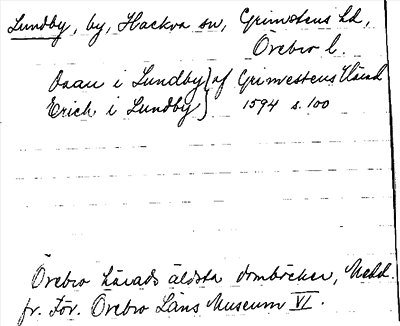 Lundby, by, Hackva sn, Grimstens hd,
Örebro l.
Oaau i Lundby } af Grimestens Härad
Erich i Lundby } 1594 s. 100
Örebro härads äldsta domböcker, Medd.
fr. För. Örebro Läns Museum VI.